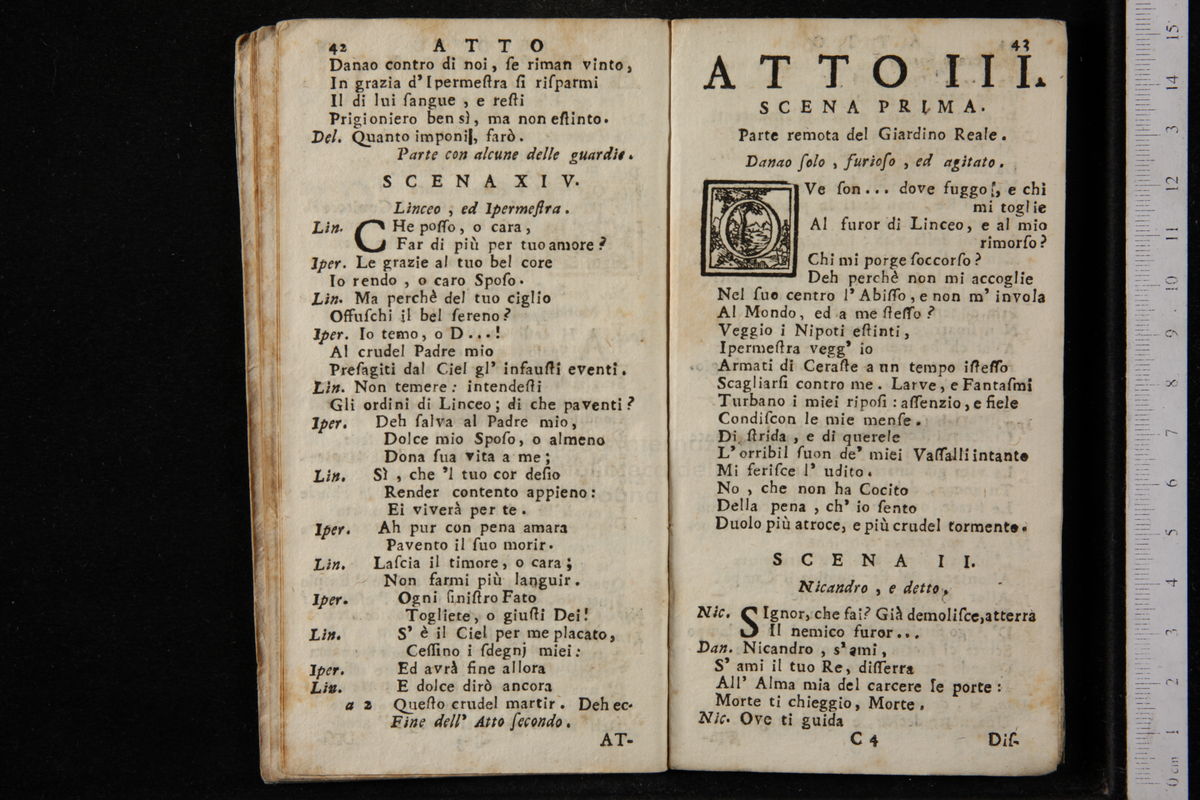 42 ATTO
Danao contro di noi, ſe riman vinto,
In grazia d'Ipermeſtra ſi riſparmi
Il di lui ſangue, e reſti
Prigioniero ben sì, ma non eſtinto.
Del. Quanto imponi, farò.
Parte con alcune delle guardie.
SCENA XIV.
Linceo, ed Ipermeſtra.
Lin. CHe poſſo, o cara,
Far di più per tuo amore?
Iper. Le grazie al tuo bel core
Io rendo, o caro Spoſo.
Lin. Ma perchè del tuo ciglio
Offuſchi il bel ſereno?
Iper. Io temo, o D...!
Al crudel Padre mio
Preſagiti dal Ciel gl' infauſti eventi.
Lin. Non temere: intendeſti
Gli ordini di Linceo; di che paventi?
Iper. Deh ſalva al Padre mio,
Dolce mio Spoſo, o almeno
Dona ſua vita a me;
Lin. Sì, che 'l tuo cor deſio
Render contento appieno:
Ei viverà per te.
Iper. Ah pur con pena amara
Pavento il ſuo morir.
Lin. Laſcia il timore, o cara;
Non farmi più languir.
Iper. Ogni ſiniſtro Fato
Togliete, o giuſti Dei!
Lin. S' è il Ciel per me placato,
Ceſſino i ſdegnj miei:
Iper. Ed avrà fine allora
Lin. E dolce dirò ancora
a 2 Queſto crudel martir. Deh ec.
Fine dell' Atto ſecondo.
AT-
43
ATTO III.
SCENA PRIMA.
Parte remota del Giardino Reale.
Danao ſolo, furioſo, ed agitato.
OVe ſon... dove fuggo, e chi
mi toglie
Al furor di Linceo, e al mio
rimorſo?
Chi mi porge ſoccorſo?
Deh perchè non mi accoglie
Nel ſuo centro l' Abiſſo, e non m' invola
Al Mondo, ed a me ſteſſo?
Veggio i Nipoti eſtinti,
Ipermeſtra vegg' io
Armati di Ceraſte a un tempo iſteſſo
Scagliarſi contro me. Larve, e Fantaſmi
Turbano i miei ripoſi: aſſenzio, e fiele
Condiſcon le mie menſe.
Di ſtrida, e di querele
L' orribil ſuon de' miei Vaſſalli intanto
Mi feriſce l' udito.
No, che non ha Cocito
Della pena, ch' io ſento
Duolo più atroce, e più crudel tormento.
SCENA II.
Nicandro, e detto.
Nic. SIgnor, che fai? Già demoliſce, atterra
Il nemico furor...
Dan. Nicandro, s'ami,
S' ami il tuo Re, diſſerra
All' Alma mia del carcere le porte:
Morte ti chieggio, Morte.
Nic. Ove ti guida
C 4 Diſ-
0 cm 1 2 3 4 5 6 7 8 9 10 11 12 13 14 15